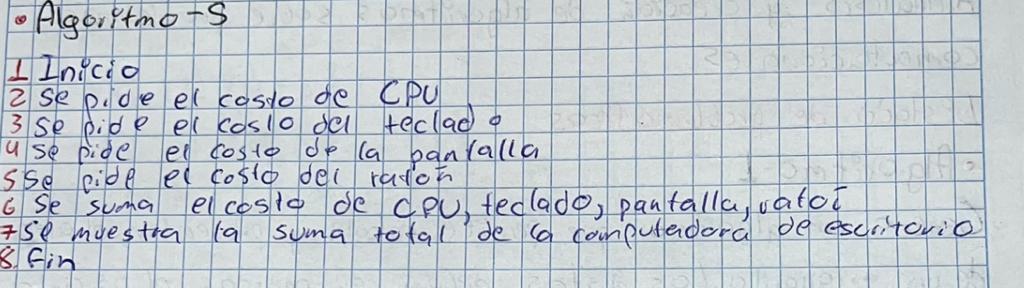 • Algoritmo-5
1 Inicio
2 se pide el costo de CPU
3 se pide el costo del teclado
4 se pide el costo de la pantalla
5 se pide el costo del raton
6 se suma el costo de CPU, teclado, pantalla, raton
7 se muestra la suma total de la computadora de escritorio
8. fin